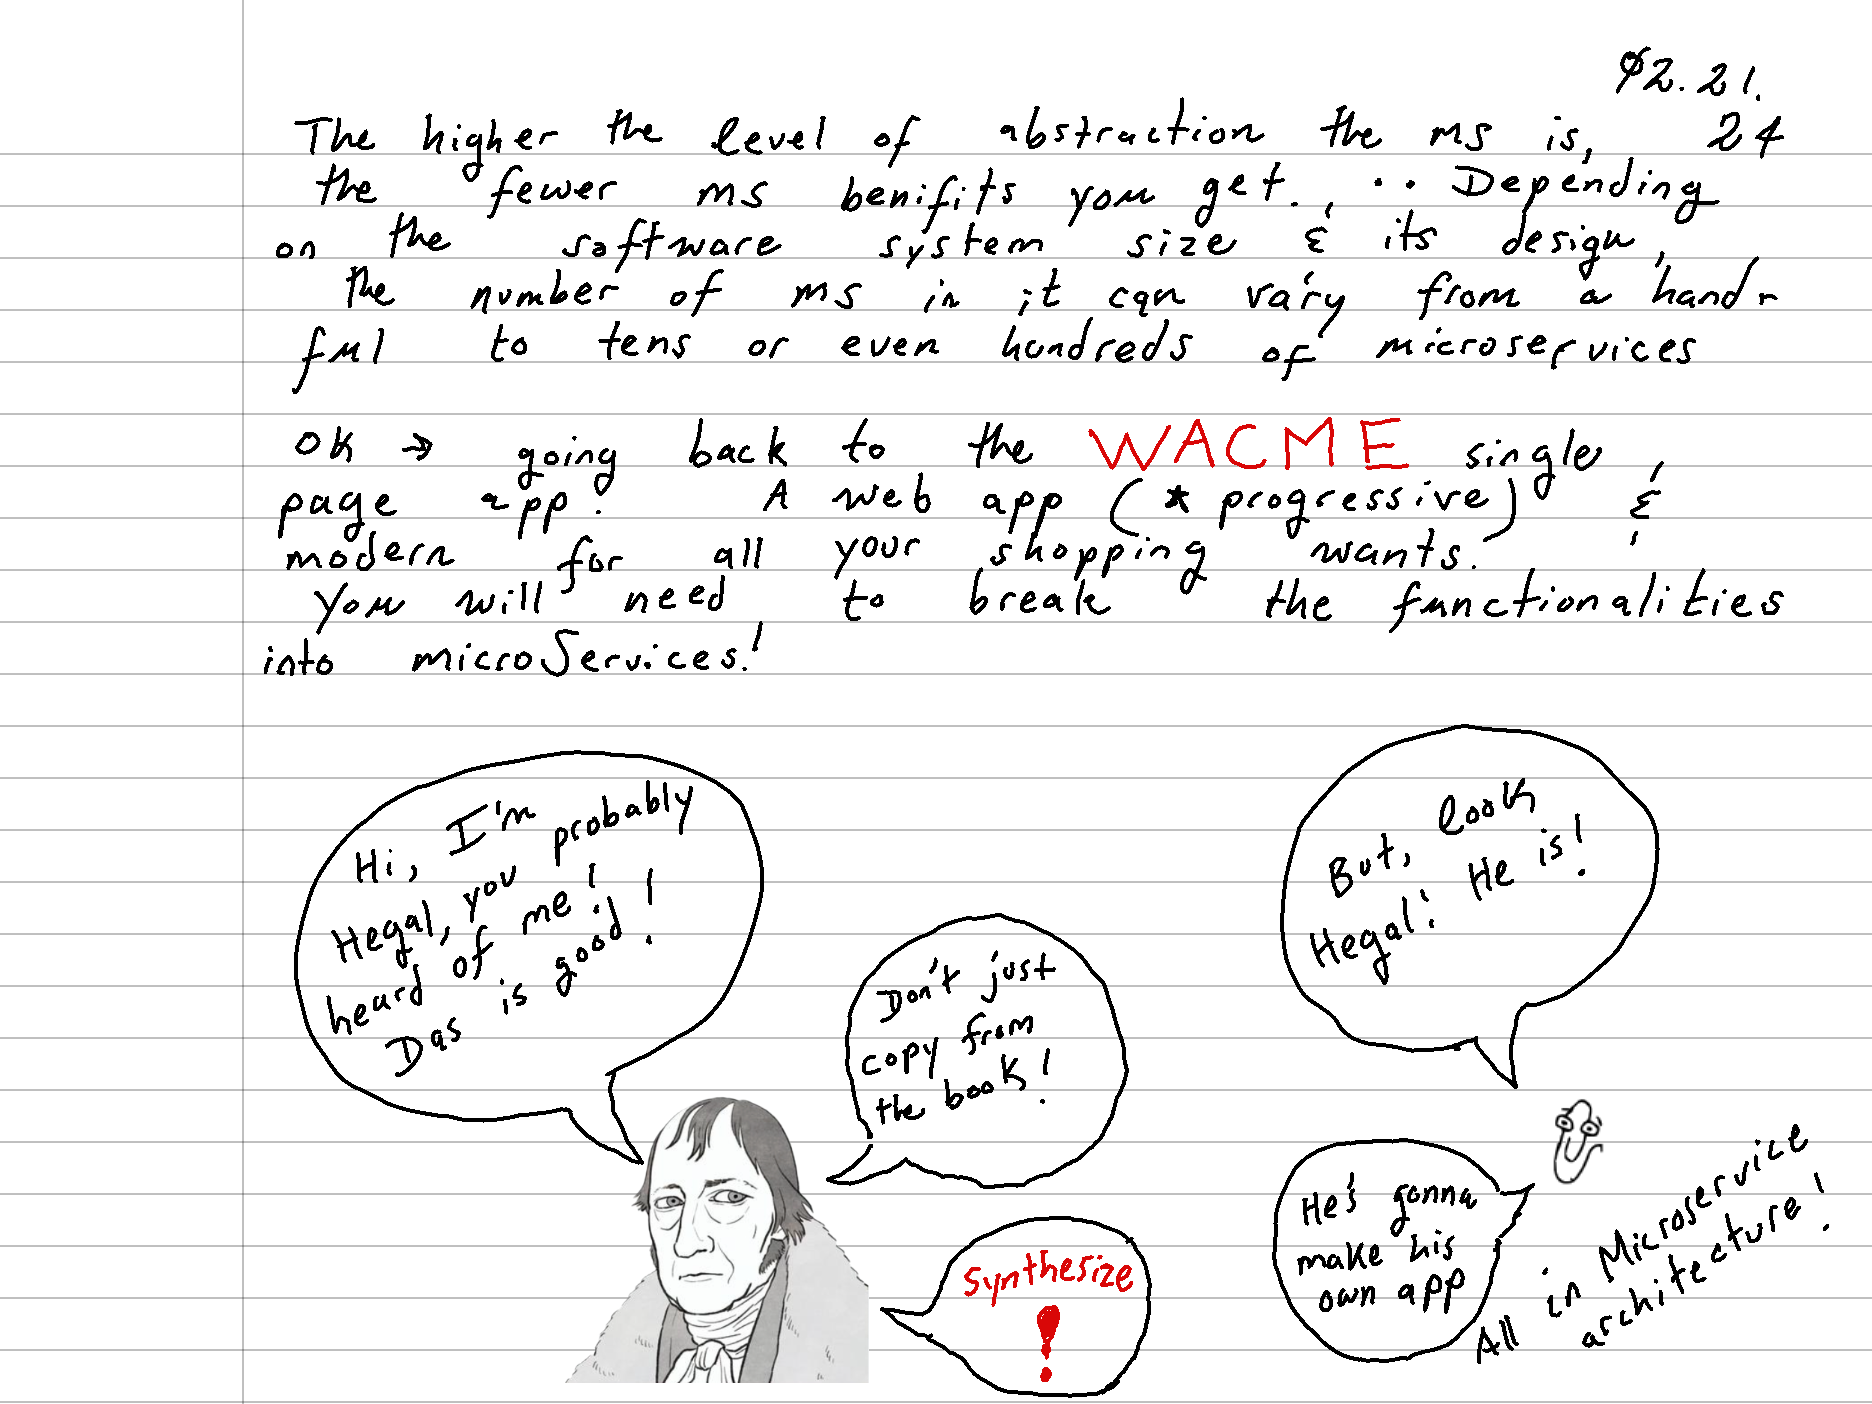 02.21.
24
The higher the level of abstraction the ms is,
the fewer ms benifits you get. .. Depending
on the software system size & its design,
the number of ms in it can vary from a hand-
ful to tens or even hundreds of microservices
OK → going back to the WACME single
page app. A web app (* progressive) &
modern for all your shopping wants.
You will need to break the functionalities
into microServices!
Hi, I'm
Hegal, you probably
heard of me!
Das is good!
Don't just
copy from
the book!
Synthesize
!
But, look
Hegal! He is!
He's gonna
make his
own app
All in Microservice
architecture!